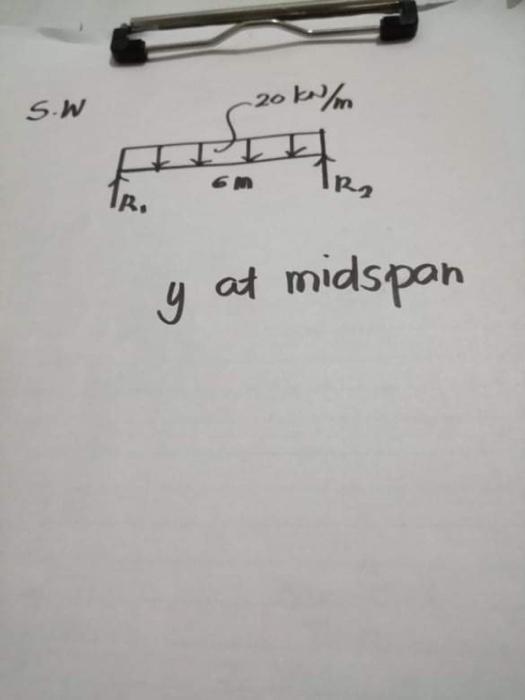 S.W
20 kN/m
6 m
R₁
R₂
y at midspan